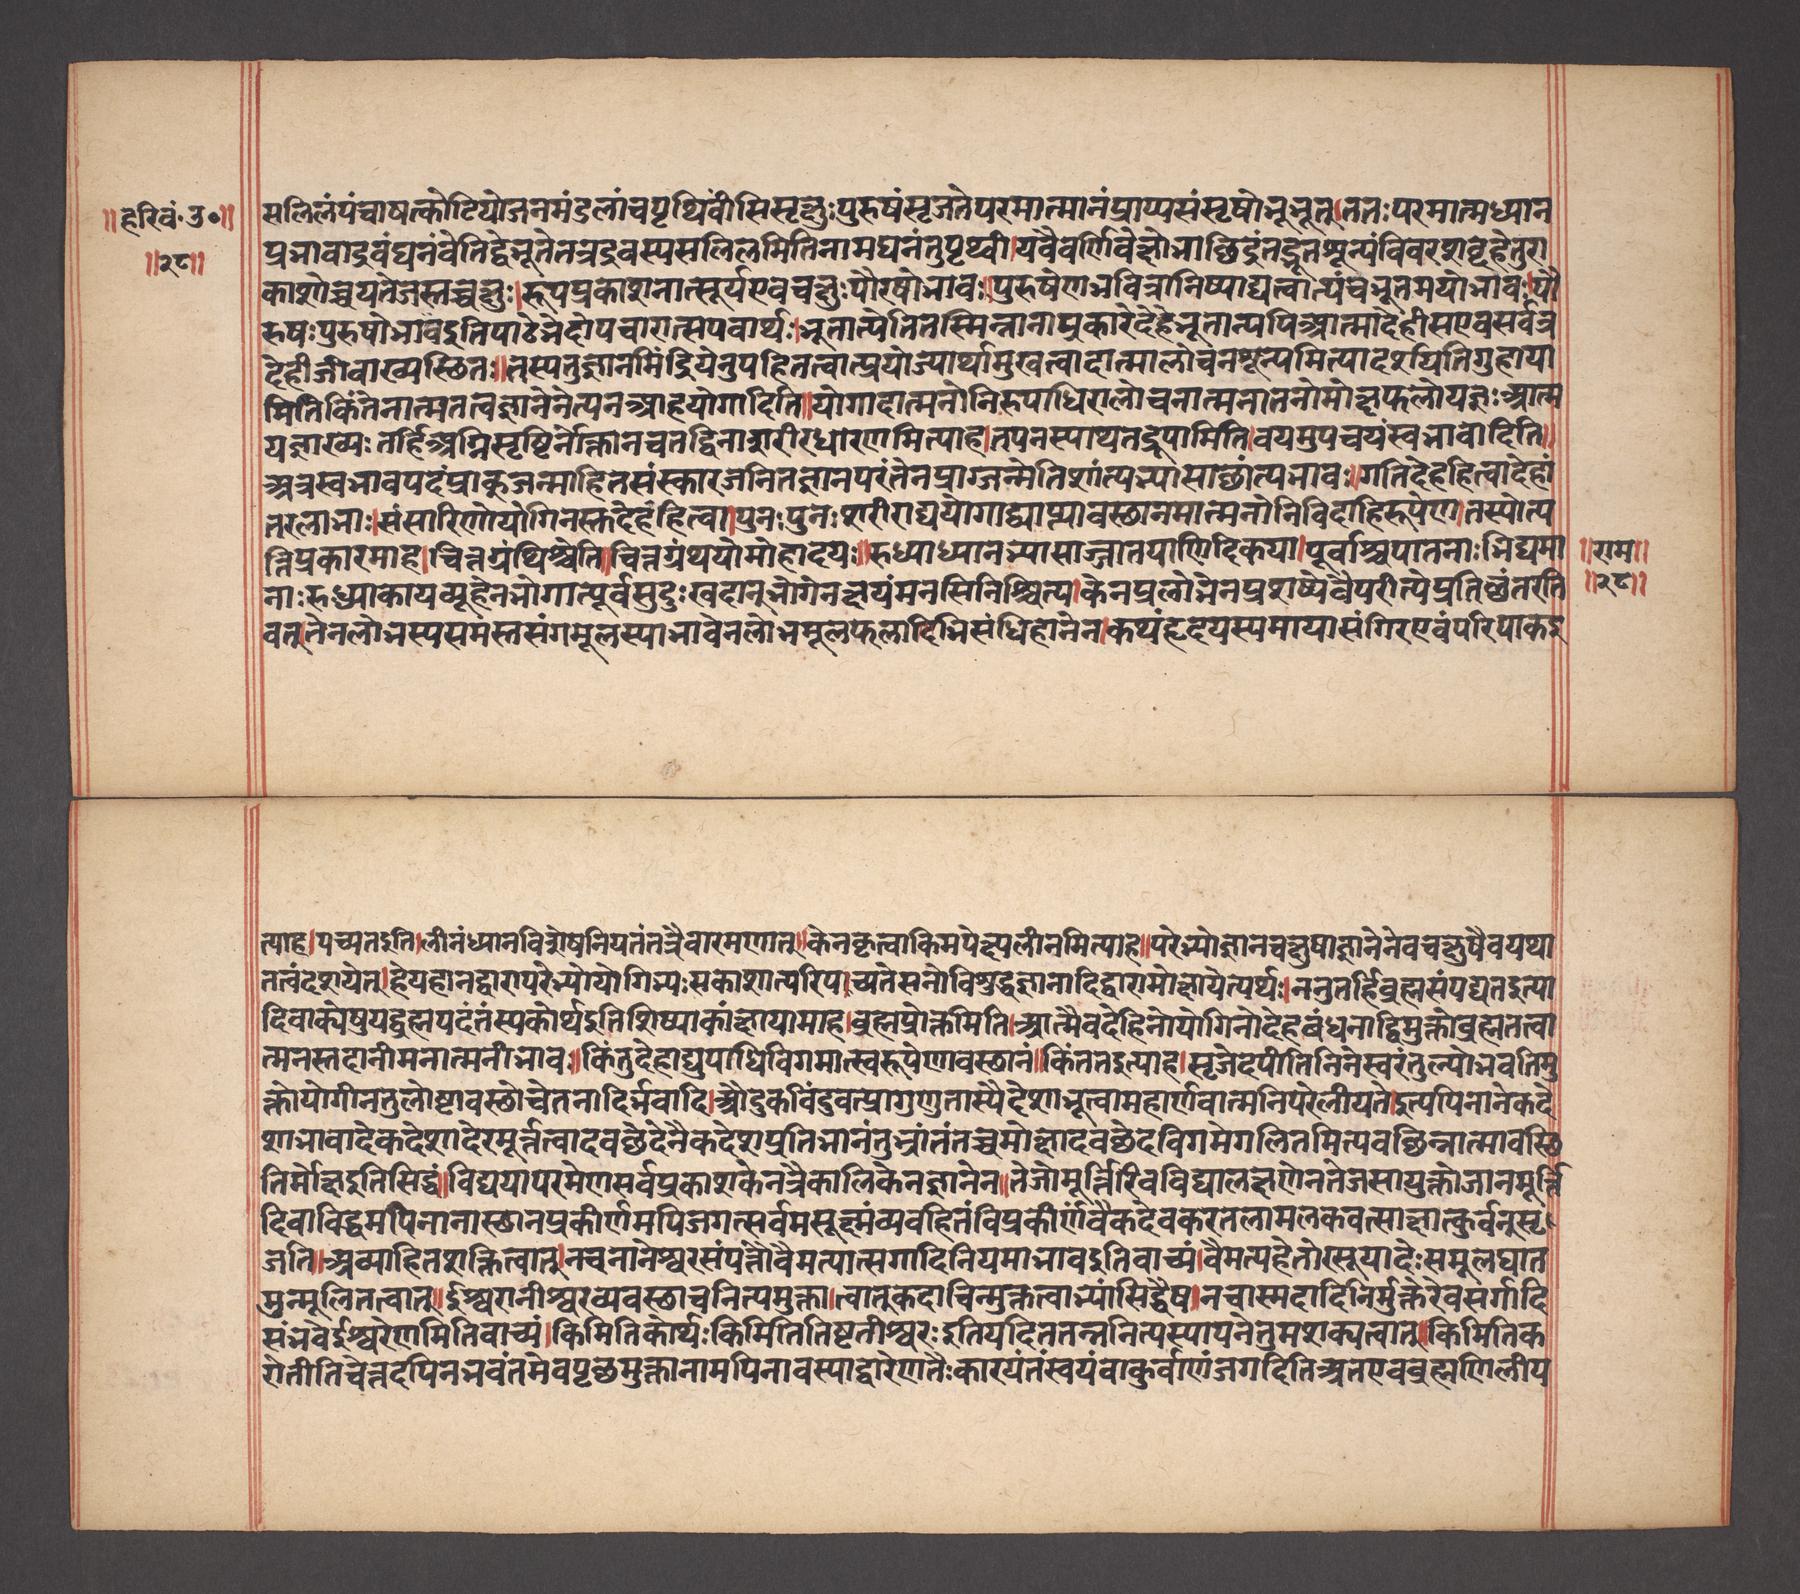 ॥हरिवं॰उ॰॥
॥२८॥
सलिलंपंचाषत्कोटियोजनमंडलांचपृथिवींसिसृक्षुःपुरुषंसृजतेपरमात्मानंप्राप्यसंसृषोभूभूत्।ततःपरमात्मध्यान
प्रभावाद्रुवंघनंवेतिद्वेभूतेतत्रद्रवस्यसलिलमितिनामघनंतुपृथ्वी।यंवैवर्णिवेह्नोभाछिद्रंतद्भूतशून्यंविवरशवृहेतुरा
काशोच्चयतेजस्तच्चक्षुः।रूपप्रकाशनात्सूर्यएवचक्षुःपौरुषोभावः॥पुरुषेणाभवित्रानिष्पाद्यत्वात्पंचभूतमयोभावः।पौ
रुषःपुरुषोभावइतिपाठेभेदोपचारात्सएवार्थः।भूतात्येतितस्मिन्नानाप्रकारेदेहेभूतात्यपिआत्मादेहीसएवसर्वत्र
देहीजीवाख्यस्छितः॥तस्यतुज्ञानमिंद्रियेनुपहितत्वात्प्रयोज्यार्थामुखत्वादात्मालोचनशून्यमित्यादेशयितिगुहाया
मितिकिंतेनात्मतत्वज्ञानेनेत्यनआहयोगादिति॥योगादात्मनोनिरुपाधिरालोचनात्मनातनोमोक्षफलोयज्ञःआत्म
यज्ञाख्यःतर्हिअग्निसृष्टिर्नोक्तानचतद्विनाशरीरधारणमित्याह।तपनस्याथतद्रूपामिति।वयमुपचयंस्वभावादिति॥
अत्रस्वभावपदंप्राक्जन्माहितसंस्कारजनितज्ञानपरंतेनप्राग्जन्मेतिशांत्यभ्यासाछांत्यभावः॥गतिदेहंहित्वादेहां
तरलाभाः।संसारिणोयोगिनस्तंदेहंहित्वा।पुनःपुनःशरीराद्ययोगाद्याप्यावस्छानमात्मनोनिविदाहिरूपेण।तस्योत्प
त्तिप्रकारमाह।चित्तग्रंथिश्चेति॥चित्तग्रंथयोमोहादयः॥रुध्याध्यानभ्यासाज्जातपाणिदिकया।पूर्वाश्चपातनाःभिद्यमा
नाःरुध्याकायव्यूहेनभोगात्पूर्वसुदुःखदानुभोगेनक्षयंमनसिनिश्चित्य।केनप्रलोभेनप्रशष्येवैपरीत्येप्रतिष्ठंतरति
वत्।तेनलोभस्यसमस्तसंगमूलस्याभावेनलोभमूलफलादिभिसंधिहानेन।कथंहृदयस्यमायासंगिरएवंपरिपाकइ
॥राम॥
॥२८॥
त्याह।पच्यतइति।लीनंध्यानविशेषनियतंतत्रैवारमणात्॥केनकृत्वाकिमपेक्ष्यलीनमित्याह॥परेभ्योज्ञानचक्षुषाज्ञानेनेवचक्षुषैवयथा
तत्वंदर्शयेत्।हेयहानद्वारापरेभ्योयोगिभ्यःसकाशात्परिपाच्यतेसनोविशुद्धज्ञानादिद्वारामोक्षायेत्यर्थः।ननुतर्हिब्रह्मसंपद्यतइत्या
दिवाक्येषुयद्ब्रह्मपदंतंस्यकोर्थइतिशिष्याकांक्षायामाह।ब्रह्मप्रोक्तमिति।आत्मैवदेहिनोयोगिनोदेहबंधनाद्विमुक्तोब्रह्मतत्वा
त्मनस्तदानीमनात्मनीभावः॥किंतुदेहाद्युपाधिविगमात्स्वरूपेणावस्छानं॥किंतत्इत्याह।सृजेदपीतिनिनेस्वरंतुल्योभवतिमु
क्तोयोगीनतुलोष्टावस्छोचेतनादिर्भवादि।औदुकविंदुवत्प्रागुणुतास्यैदेशाभूत्वामहार्णवात्मनिपरेलीयते।इत्यपिनानेकदे
शाभावादेकदेशादेरमूर्त्तत्वादवछेदेनैकदेशप्रतिभानंतुभ्रांतंतच्चमोक्षोदवछेदविगमेगलितमित्यवछिन्नात्मावस्छि
तिर्मोक्षइतिसिद्धं॥विद्ययापरमेणसर्वप्रकाशकेनत्रैकालिकेनज्ञानेन॥तेजोमूर्त्तिरिवविद्यालक्षणेनतेजसायुक्तोज्ञानमूर्त्ति
दिवाविद्धमपिनानास्छानप्रकीर्णमपिजगत्सर्वमसूक्ष्मंव्यवहितंविप्रकीर्णंवैकदैवकरतलामलकवत्साक्षात्कुर्वनुसृ
जति॥अव्याहितशक्तित्वात्।नचनानेश्वरसंपत्तौवैमत्यात्सर्गादिनियमाभावइतिवाच्यं।वैमत्यहेतोरसूयादेःसमूलघात
मुन्मूलितत्वात्॥ईश्वरानीश्वरव्यवस्छाचनित्यमुक्ता।त्वात्कदाचिन्मुक्तत्वाभ्यांसिद्धैष।नचास्मदादिनिर्मुक्तेरेवसर्गादि
संभवेईश्वरेणमितिवाच्यं।किमितिकोर्थःकिमितितिष्टतीश्वरःइतियदितत्तन्ननित्यस्यापनेतुमशक्यत्वात्॥किमितिक
रोतीतिचेन्नदपिनभवंतमेवपृछमुक्तानामपिनावस्याद्वारेणतैःकारयंतंस्वयंवाकुर्वाणंजगदितिअतएवब्रह्मणिलीय